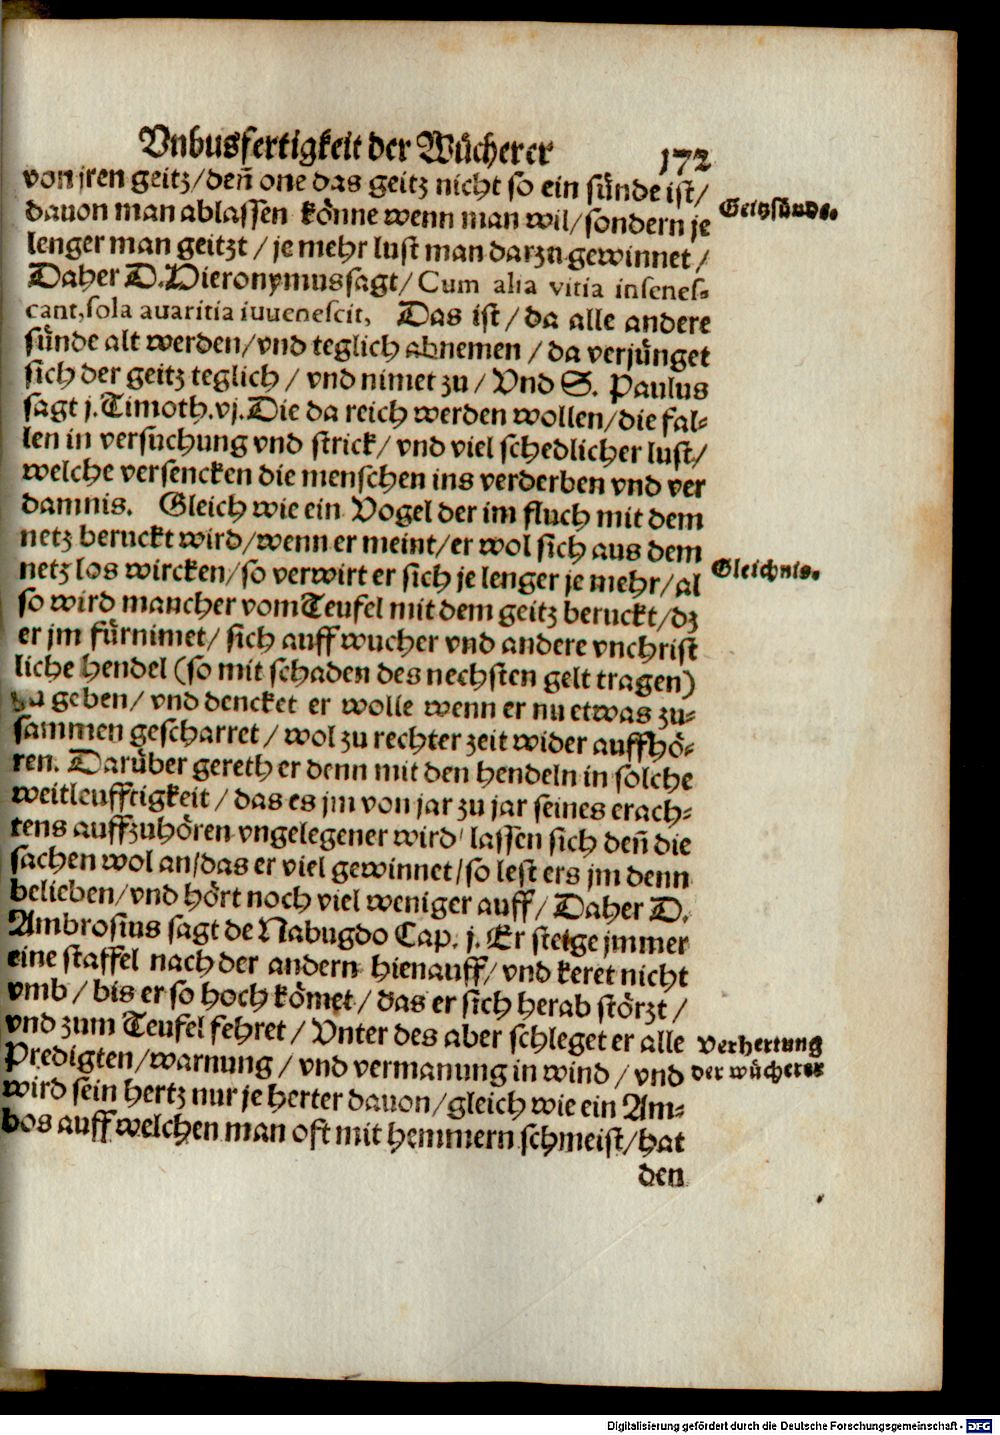 Vnbusfertigkeit der Wücherer 172
von jren geitz/deñ one das geitz nicht so ein sünde ist/
dauon man ablassen könne wenn man wil/sondern je
Geitzsünde.
lenger man geitzt / je mehr lust man darzu gewinnet /
Daher D.Hieronymus sagt/ Cum alia vitia insenes-
cant,sola auaritia iuuenescit, Das ist / da alle andere
sünde alt werden/vnd teglich abnemen / da verjünget
sich der geitz teglich / vnd nimet zu / Vnd S. Paulus
sagt j.Timoth.vj.Die da reich werden wollen/die fal-
len in versuchung vnd strick/ vnd viel schedlicher lust/
welche versencken die menschen ins verderben vnd ver
damnis. Gleich wie ein Vogel der im fluch mit dem
netz beruckt wird/wenn er meint/er wol sich aus dem
netz los wircken/so verwirt er sich je lenger je mehr/al
Gleichnis.
so wird mancher vom Teufel mit dem geitz beruckt/dz
er jm fürnimet/ sich auff wucher vnd andere vnchrist
liche hendel (so mit schaden des nechsten gelt tragen)
zu geben/ vnd dencket er wolle wenn er nu etwas zu-
sammen gescharret / wol zu rechter zeit wider auffhö-
ren. Darüber gereth er denn mit den hendeln in solche
weitleufftigkeit / das es jm von jar zu jar seines erach-
tens auffzuhören vngelegener wird/ lassen sich deñ die
sachen wol an/das er viel gewinnet/so lest ers jm denn
belieben/vnd hört noch viel weniger auff/ Daher D.
Ambrosius sagt de Nabugdo Cap. j. Er steige jmmer
eine staffel nach der andern hienauff/ vnd keret nicht
vmb / bis er so hoch kömet / das er sich herab störzt /
vnd zum Teufel fehret / Vnter des aber schleget er alle
Verhertung
Predigten/warnung / vnd vermanung in wind / vnd
der wücherer
wird sein hertz nur je herter dauon/gleich wie ein Am-
bos auff welchen man oft mit hemmern schmeist/hat
den
Digitalisierung gefördert durch die Deutsche Forschungsgemeinschaft - DFG